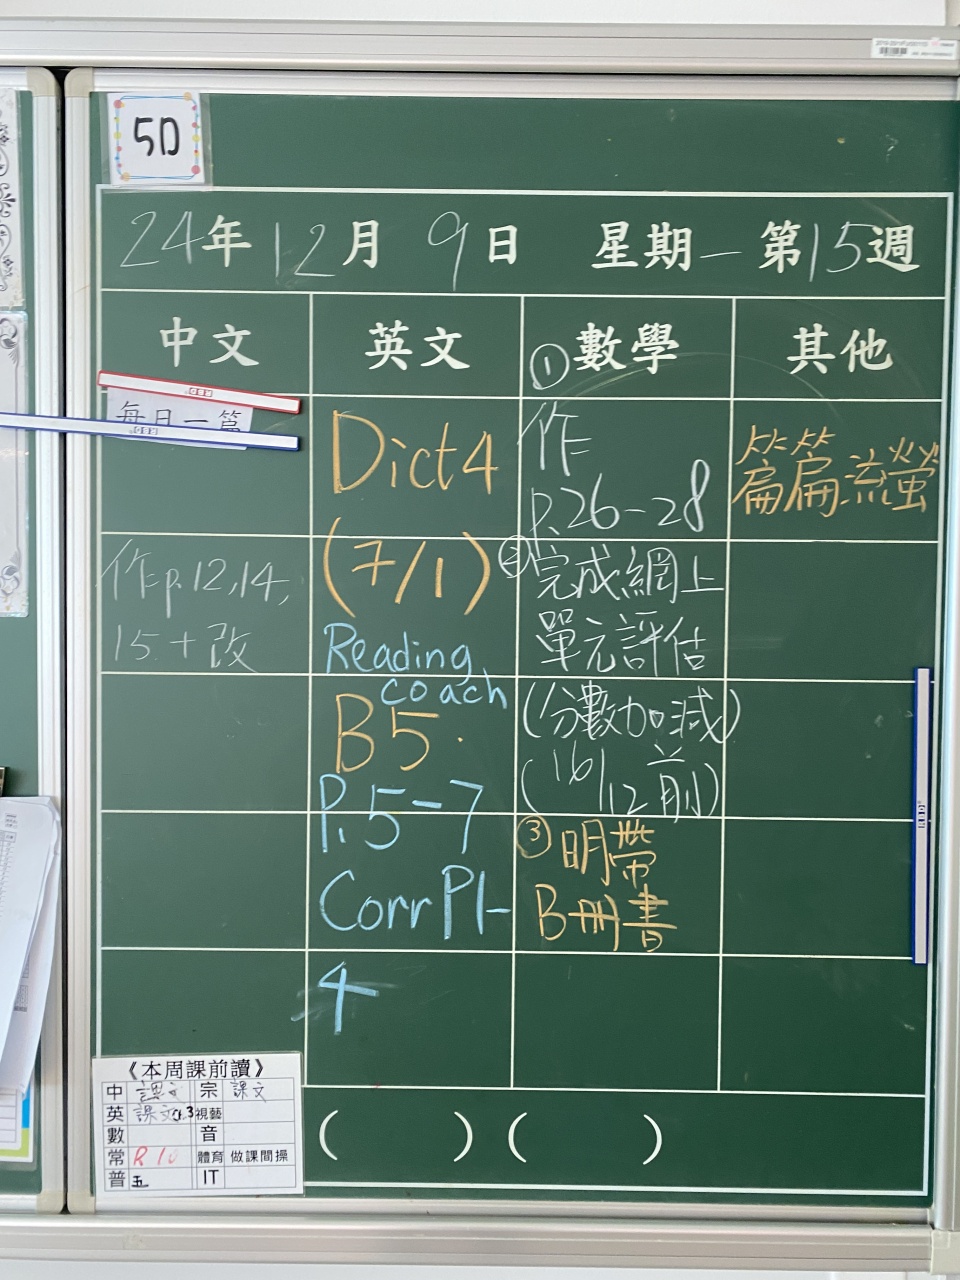 5D
24年12月9日 星期一 第15週
中文 英文 ①數學 其他
每日一篇
作p.12,14,
15.+改
Dict4
(7/1)
Reading
coach
B5.
P.5-7
Corr P1-
4
作
p.26-28
②完成網上
單元評估
(分數加減)
(16/12前)
③明帶
B冊書
篇篇流螢
《本周課前讀》
中 課文 宗 課文
英 課文ch.3 視藝
數 音
常 R10 體育 做課間操
普 五 IT
( ) ( )